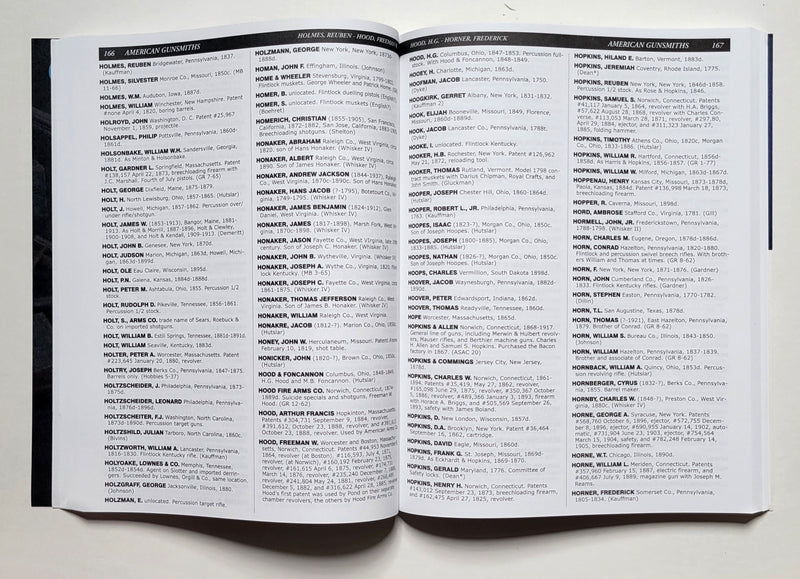 166 AMERICAN GUNSMITHS
HOLMES, REUBEN - HOOD, FREEMAN
HOLMES, REUBEN Bridgewater, Pennsylvania, 1837.
(Kauffman)
HOLMES, SILVESTER Monroe Co., Missouri, 1850c. (MB
11-66)
HOLMES, W.M. Audubon, Iowa, 1887d.
HOLMES, WILLIAM Winchester, New Hampshire. Patent
#none April 4, 1820, boring barrels.
HOLROYD, JOHN Washington, D. C. Patent #25,967
November 1, 1859, projectile.
HOLSAPPEL, PHILIP Pottsville, Pennsylvania, 1860d-
1861d.
HOLSONBAKE, WILLIAM W.H. Sandersville, Georgia,
1881d. As Minton & Holsonbake.
HOLT, GARDNER L. Springfield, Massachusetts. Patent
#138,157 April 22, 1873, breechloading firearm with
J.C. Marshall. Fourth of July pistols. (GR 7-65)
HOLT, GEORGE Dixfield, Maine, 1875-1879.
HOLT, H. North Lewisburg, Ohio, 1857-1865. (Hutslar)
HOLT, J. Howell, Michigan, 1857-1862. Percussion over/
under rifle/shotgun.
HOLT, JAMES W. (1853-1913), Bangor, Maine, 1881-
1913. As Holt & Morrill, 1887-1896, Holt & Clewley,
1900-1908, and Holt & Kendall, 1909-1913. (Demeritt)
HOLT, JOHN B. Genesee, New York, 1870d.
HOLT, JUDSON Marion, Michigan, 1863d, Howell, Michi-
gan, 1863d-1899d.
HOLT, OLE Eau Claire, Wisconsin, 1895d.
HOLT, P.N. Galena, Kansas, 1884d-1888d.
HOLT, PETER M. Ashtabula, Ohio, 1855. Percussion 1/2
stock.
HOLT, RUDOLPH D. Pikeville, Tennessee, 1856-1861.
Percussion 1/2 stock.
HOLT, S., ARMS CO. trade name of Sears, Roebuck &
Co. on imported shotguns.
HOLT, WILLIAM B. Estil Springs, Tennessee, 1881d-1891d.
HOLT, WILLIAM Seaville, Kentucky, 1883d.
HOLTER, PETER A. Worcester, Massachusetts. Patent
#223,645 January 20, 1880, revolver.
HOLTRY, JOSEPH Berks Co., Pennsylvania, 1847-1875.
Barrels only. (Hobbies 5-37)
HOLTZSCHEIDER, J. Philadelphia, Pennsylvania, 1873-
1875d.
HOLTZSCHEIDER, LEONARD Philadelphia, Pennsylva-
nia, 1876d-1896d.
HOLTZSCHEITER, F.J. Washington, North Carolina,
1873d-1890d. Percussion target guns.
HOLTZSHIELD, JULIAN Tarboro, North Carolina, 1860c.
(Bivins)
HOLTZWORTH, WILLIAM A. Lancaster, Pennsylvania,
1816-1830. Flintlock Kentucky rifle. (Kauffman)
HOLYOAKE, LOWNES & CO. Memphis, Tennessee,
1852d-1856d. Agent on Slotter and imported derrin-
gers. Succeeded by Lownes, Orgill & Co., same location.
HOLZGRAFF, GEORGE Jacksonville, Illinois, 1880.
(Johnson)
HOLZMAN, E. unlocated. Percussion target rifle.
HOLZMANN, GEORGE New York, New York, 1873d-
1888d.
HOMAN, JOHN F. Effingham, Illinois. (Johnson)
HOME & WHEELER Stevensburg, Virginia, 1796-181
Flintlock muskets. George Wheeler and Patrick Home. (Gill)
HOMER, B. unlocated. Flintlock dueling pistols (English)
HOMER, S. unlocated. Flintlock muskets (English)
(Boehret)
HOMERICH, CHRISTIAN (1855-1905), San Francisco,
California, 1872-1862, San Jose, California, 1883-1905.
Breechloading shotguns. (Shelton)
HONAKER, ABRAHAM Raleigh Co., West Virginia,
1820. son of Hans Honaker. (Whisker IV)
HONAKER, ALBERT Raleigh Co., West Virginia, circa
1890. Son of James Honaker. (Whisker IV)
HONAKER, ANDREW JACKSON (1844-1937), Raleigh
Co., West Virginia, 1870c-1890c. Son of Hans Honaker.
HONAKER, HANS JACOB (?-1795), Botetourt Co., Vir-
ginia, 1749-1795. (Whisker IV)
HONAKER, JAMES BENJAMIN (1824-1912), Glen
Daniel, West Virginia. (Whisker IV)
HONAKER, JAMES (1817-1898), Marsh Fork, West Vir-
ginia, 1870c-1898. (Whisker IV)
HONAKER, JASON Fayette Co., West Virginia, late 19th
century. Son of Joseph C. Honaker. (Whisker IV)
HONAKER, JOHN B. Wytheville, Virginia. (Whisker IV)
HONAKER, JOSEPH A. Wythe Co., Virginia, 1820. Flint-
lock Kentucky. (MB 3-65)
HONAKER, JOSEPH C. Fayette Co., West Virginia, circa
1861-1875. (Whisker IV)
HONAKER, THOMAS JEFFERSON Raleigh Co., West
Virginia. Son of James B. Honaker. (Whisker IV)
HONAKER, WILLIAM Raleigh Co., West Virginia.
HONAKRE, JACOB (1812-?), Marion Co., Ohio, 1850c.
(Hutslar)
HONEY, JOHN W. Herculaneum, Missouri. Patent #none
February 10, 1819, shot table.
HONICKER, JOHN (1820-?), Brown Co., Ohio, 1850c.
(Hutslar)
HOOD & FONCANNON Columbus, Ohio, 1848-1849.
H.G. Hood and M.B. Foncannon. (Hutslar)
HOOD FIRE ARMS CO. Norwich, Connecticut, 1874-
1889d. Suicide specials and shotguns, Freeman W.
Hood. (GR 12-62)
HOOD, ARTHUR FRANCIS Hopkinton, Massachusetts.
Patents #304,731 September 9, 1884, revolver,
#391,612, October 23, 1888, revolver, and #391,613
October 23, 1888, revolver. Used by American Arms Co.
HOOD, FREEMAN W. Worcester and Boston, Massachu-
setts, Norwich, Connecticut. Patents #44,953 November 8,
1864, revolver (at Boston), #116,593, July 4, 1871,
revolver, (at Norwich), #160,192 February 23, 1875,
revolver, #161,615 April 6, 1875, revolver, #174,731
March 14, 1876, revolver, #235,240 December 7, 1880,
revolver, #241,804 May 24, 1881, revolver, #268,
December 5, 1882, and #316,622 April 28, 1885, revolver.
Hood's first patent was used by Pond on their separate
chamber revolvers, the others by Hood Fire Arms Co.
HOOD, H.G. - HORNER, FREDERICK
AMERICAN GUNSMITHS 167
HOOD, H.G. Columbus, Ohio, 1847-1853. Percussion full-
stock. With Hood & Foncannon, 1848-1849.
HOOEY, H. Charlotte, Michigan, 1863d.
HOOFMAN, JACOB Lancaster, Pennsylvania, 1750.
(Dyke)
HOOGKIRK, GERRET Albany, New York, 1831-1832.
(Kauffman 2)
HOOK, ELIJAH Booneville, Missouri, 1849, Florence,
Missouri, 1860d-1889d.
HOOK, JACOB Lancaster Co., Pennsylvania, 1788t.
(Dyke)
HOOKE, I. unlocated. Flintlock Kentucky.
HOOKER, H.B. Rochester, New York. Patent #126,962
May 21, 1872, reloading tool.
HOOKER, THOMAS Rutland, Vermont. Model 1798 con-
tract muskets with Darius Chipman, Royal Crafts, and
John Smith. (Gluckman)
HOOPER, JOSEPH Chester Hill, Ohio, 1860-1864d.
(Hutslar)
HOOPER, ROBERT L., JR. Philadelphia, Pennsylvania,
1763. (Kauffman)
HOOPES, ISAAC (1823-?), Morgan Co., Ohio, 1850c.
Son of Joseph Hoopes. (Hutslar)
HOOPES, JOSEPH (1800-1885), Morgan Co., Ohio,
1833-1885. (Hutslar)
HOOPES, NATHAN (1826-?), Morgan Co., Ohio, 1850c.
Son of Joseph Hoopes. (Hutslar)
HOOPS, CHARLES Vermillion, South Dakota, 1898d.
HOOVER, JACOB Waynesburg, Pennsylvania, 1882d-
1890d.
HOOVER, PETER Edwardsport, Indiana, 1862d.
HOOVER, THOMAS Readyville, Tennessee, 1860d.
HOPE Worcester, Massachusetts, 1855d.
HOPKINS & ALLEN Norwich, Connecticut, 1868-1917.
General line of guns; including Merwin & Hulbert revolv-
ers, Mauser rifles, and Berthier machine guns. Charles
H. Allen and Samuel S. Hopkins. Purchased the Bacon
factory in 1867. (ASAC 20)
HOPKINS & COMMINGS Jersey City, New Jersey,
1878d.
HOPKINS, CHARLES W. Norwich, Connecticut, 1861-
1894. Patents #35,419, May 27, 1862, revolver,
#165,098 June 29, 1875, revolver, #350,367 October
5, 1886, revolver, #489,366 January 3, 1893, firearm
with Horace A. Briggs, and #505,569 September 26,
1893, safety with James Boland.
HOPKINS, D. New London, Wisconsin, 1857d.
HOPKINS, D.A. Brooklyn, New York. Patent #36,464
September 16, 1862, cartridge.
HOPKINS, DAVID Eagle, Missouri, 1860d.
HOPKINS, FRANK G. St. Joseph, Missouri, 1869d-
1879d. As Eckhardt & Hopkins, 1869-1870.
HOPKINS, GERALD Maryland, 1776. Committee of
Safety locks. (Dean*)
HOPKINS, HENRY H. Norwich, Connecticut. Patents
#143,012 September 23, 1873, breechloading firearm,
and #162,475 April 27, 1825, revolver.
HOPKINS, HILAND E. Barton, Vermont, 1883d.
HOPKINS, JEREMIAH Coventry, Rhode Island, 1775.
(Dean*)
HOPKINS, REUBEN New York, New York, 1846d-1858.
Percussion 1/2 stock. As Rose & Hopkins, 1846.
HOPKINS, SAMUEL S. Norwich, Connecticut. Patents
#41,117 January 5, 1864, revolver with H.A. Briggs,
#57,622 August 28, 1868, revolver with Charles Con-
verse, #113,053 March 28, 1871, revolver, #297,801
April 29, 1884, ejector, and #311,323 January 27,
1885, folding hammer.
HOPKINS, TIMOTHY Athens Co., Ohio, 1820c, Morgan
Co., Ohio, 1833-1886. (Hutslar)
HOPKINS, WILLIAM R. Hartford, Connecticut, 1856d-
1858d. As Harris & Hopkins, 1856-1857. (GR 1-77)
HOPKINS, WILLIAM W. Milford, Michigan, 1863d-1867d.
HOPPENAU, HENRY Kansas City, Missouri, 1873-1878d,
Paola, Kansas, 1884d. Patent #136,998 March 18, 1873,
breechloading firearm.
HOPPER, R. Caverna, Missouri, 1898d.
HORD, AMBROSE Stafford Co., Virginia, 1781. (Gill)
HORMELL, JOHN, JR. Fredericktown, Pennsylvania,
1788-1798. (Whisker II)
HORN, CHARLES M. Eugene, Oregon, 1878d-1886d.
HORN, CONRAD Hazelton, Pennsylvania, 1820-1880.
Flintlock and percussion swivel breech rifles. With broth-
ers William and Thomas at times. (GR 8-62)
HORN, F. New York, New York, 1871-1876. (Gardner)
HORN, JOHN Cumberland Co., Pennsylvania, 1826-
1833. Flintlock Kentucky rifles. (Gardner)
HORN, STEPHEN Easton, Pennsylvania, 1770-1782.
(Dillin)
HORN, T.L. San Augustine, Texas, 1878d.
HORN, THOMAS (?-1921), East Hazelton, Pennsylvania,
1879. Brother of Conrad. (GR 8-62)
HORN, WILLIAM S. Bureau Co., Illinois, 1843-1850.
(Johnson)
HORN, WILLIAM Hazelton, Pennsylvania, 1837-1839.
Brother and associate of Conrad. (GR 8-62)
HORNBACK, WILLIAM A. Quincy, Ohio, 1853d. Percus-
sion revolving rifle. (Hutslar)
HORNBERGER, CYRUS (1832-?), Berks Co., Pennsylva-
nia, 1855. Barrel maker.
HORNBY, CHARLES W. (1848-?), Preston Co., West Vir-
ginia, 1880c. (Whisker IV)
HORNE, GEORGE A. Syracuse, New York. Patents
#568,760 October 6, 1896, ejector, #572,755 Decem-
ber 8, 1896, ejector, #690,955 January 14, 1902, auto-
matic, #731,904 June 23, 1903, ejector, #754,564
March 15, 1904, safety, and #782,248 February 14,
1905, breechloading firearm.
HORNE, W.T. Chicago, Illinois, 1890d.
HORNE, WILLIAM L. Meriden, Connecticut. Patents
#357,960 February 15, 1887, electric firearm, and
#406,667 July 9, 1889, magazine gun with Joseph M.
Reams.
HORNER, FREDERICK Somerset Co., Pennsylvania,
1805-1834. (Kauffman)